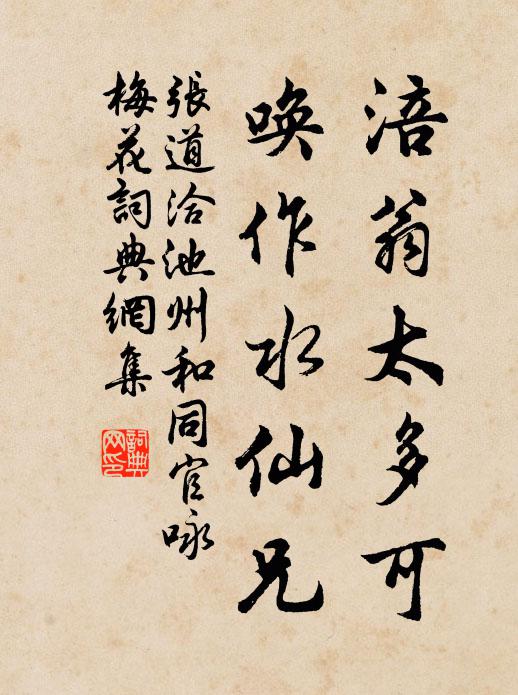 涪翁太多可
喚作水仙兄
張道洽池州和同官咏
梅花詞典網集
詞典網印